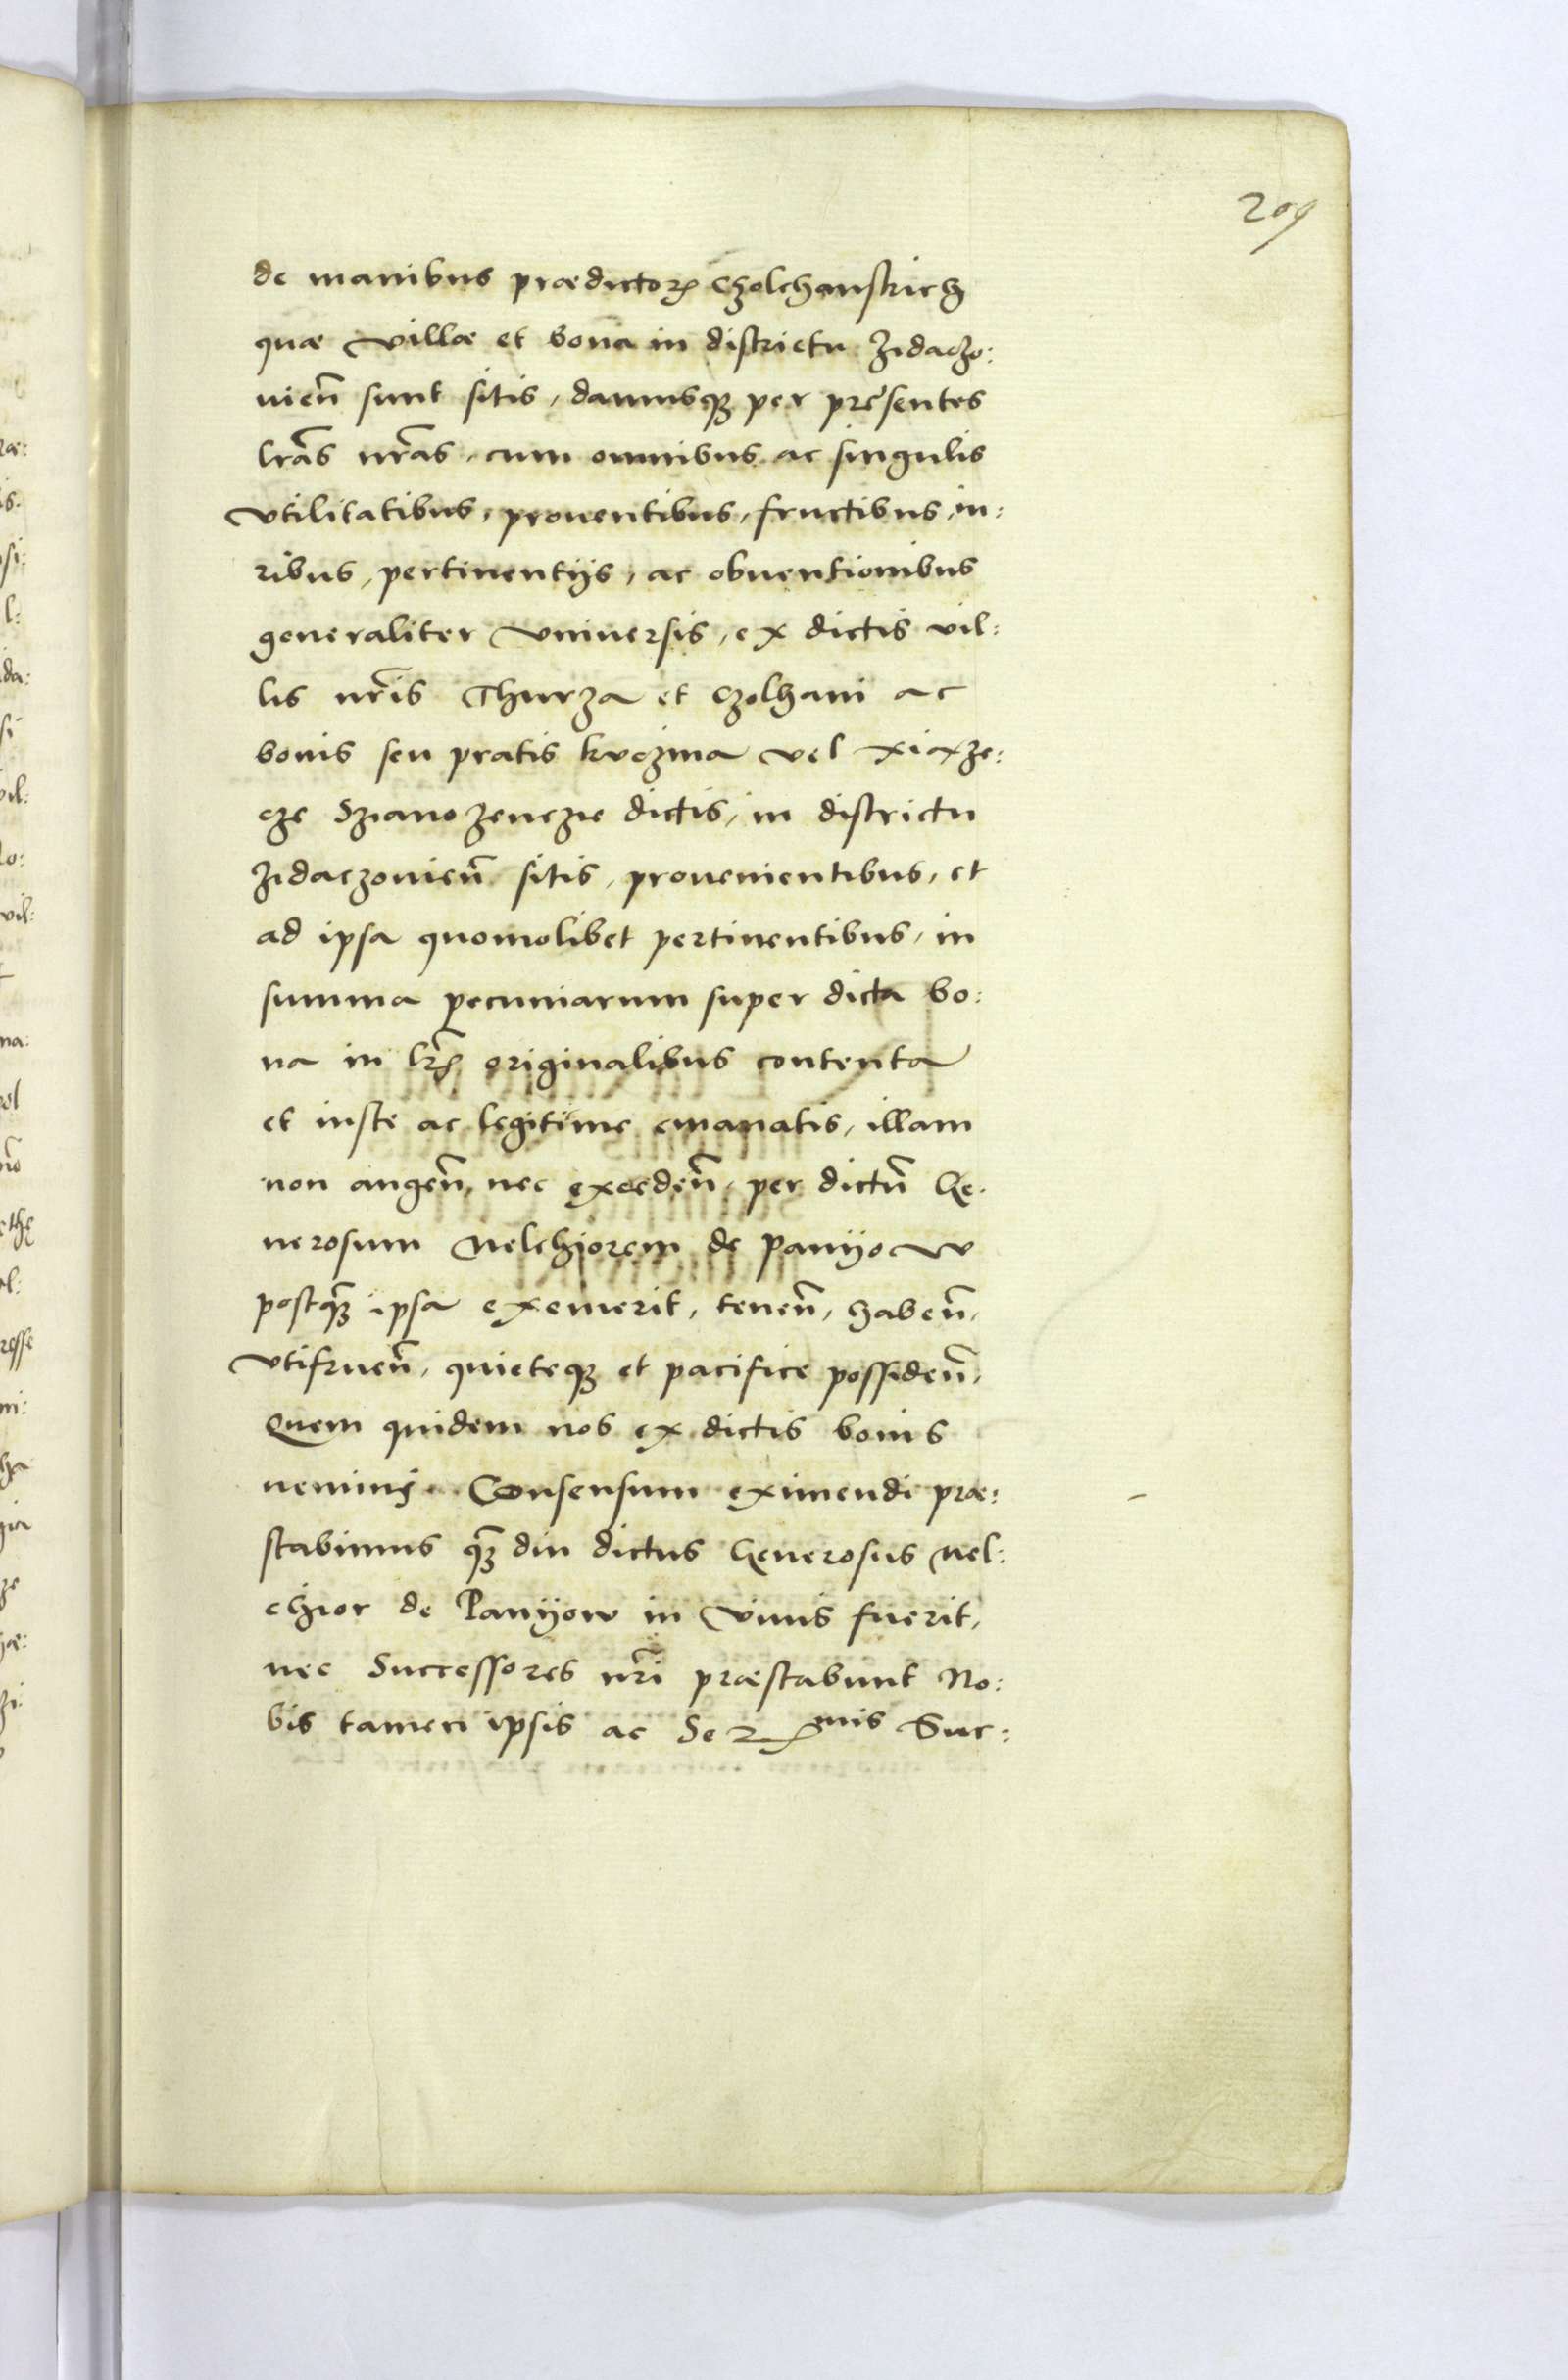 209
de manibus prædictoꝝ Czolchanskich
quæ villæ et bona in districtu Zidaczo:
uien̄ sunt sitis, damusqꝫ per præsentes
lr̃as nr̃as, cum omnibus ac singulis
vtilitatibus, prouentibus, fructibus, iu:
ribus, pertinentijs, ac obuentionibus
generaliter vniuersis, ex dictis vil:
lis nr̃is Thurza et Czolhani ac
bonis seu pratis kuczma vel xiaze:
cze Szianozenczie dictis, in districtu
Zidaczouien̄ sitis, prouenientibus, et
ad ipsa quomolibet pertinentibus, in
summa pecuniarum super dicta bo:
na in lr̃ꝭ originalibus contenta
et iuste ac legitime emanatis, illam
non augen̄, nec exceden̄, per dictu̅ Ge:
nerosum Melchiorem de paniow
postqꝫ̃ ipsa exemerit, tenen̄, haben̄,
vtifruen̄, quieteqꝫ et pacifice possiden̄,
Quem quidem nos ex dictis bonis
nemini Consensum eximendi præ:
stabimus qꝫ̃ diu dictus Generosus Mel:
chior de Panyow in viuis fuerit,
nec Successores nr̃i præstabunt No:
bis tamen ipsis ac Serᵐⁱˢ Suc: